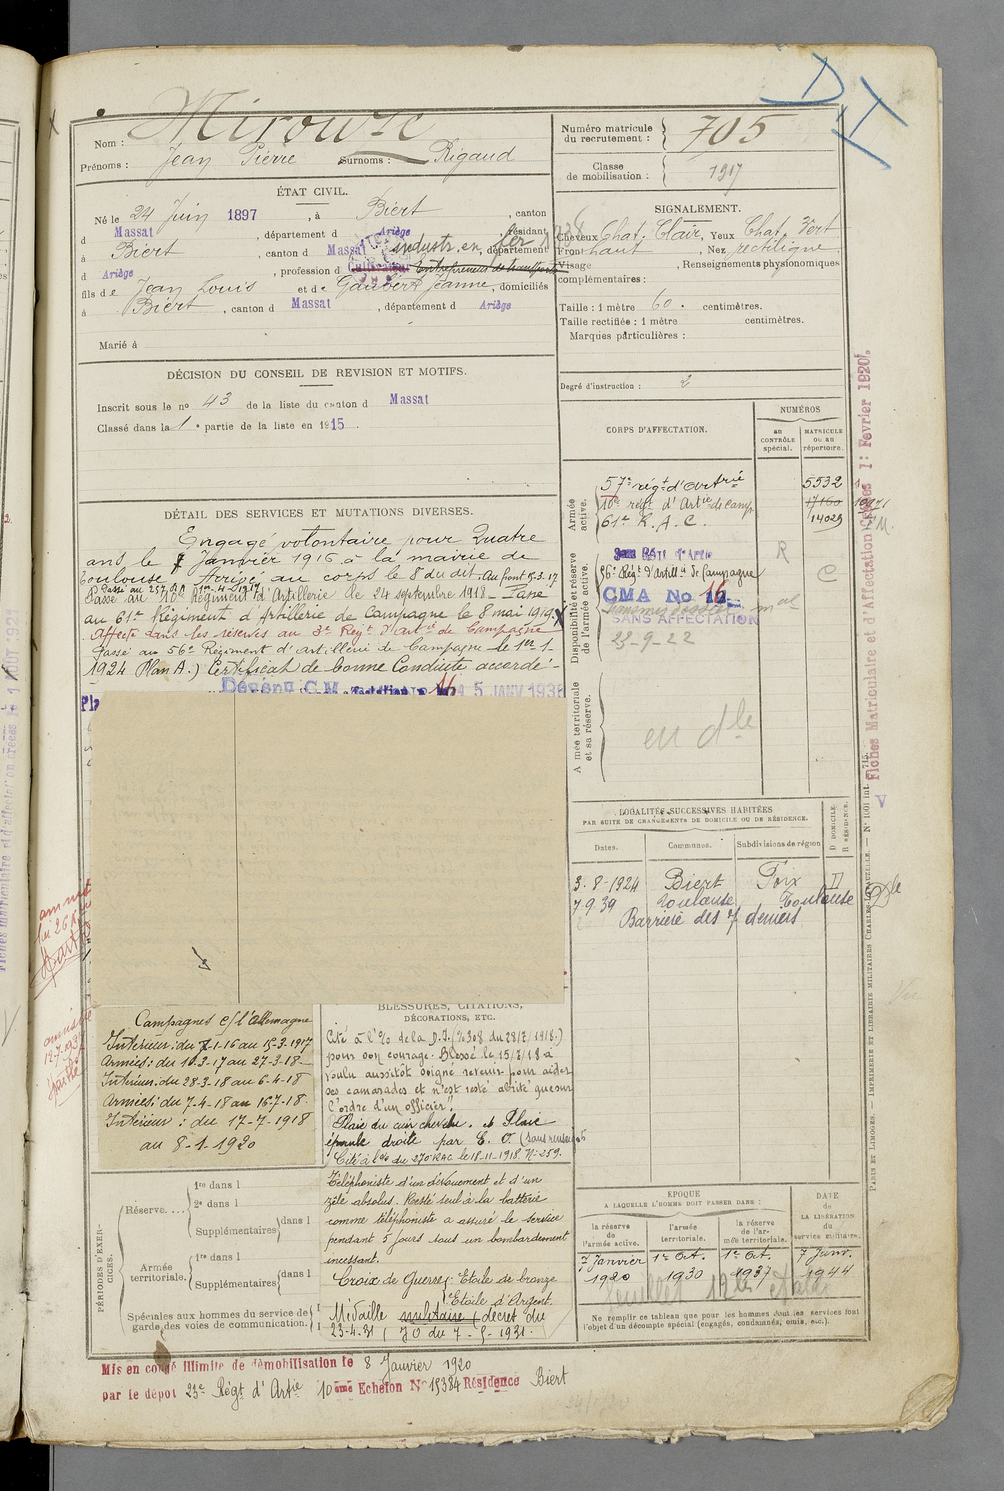 Nom : Mirouze
Prénoms : Jean Pierre Surnoms : Rigaud
Numéro matricule du recrutement : 705
Classe de mobilisation : 1917
ÉTAT CIVIL.
Né le 24 Juin 1897, à Biert, canton
d Massat, département d Ariège, résidant
à Biert, canton d Massat, département
d Ariège, profession d Cultivateur Entrepreneur de transports
industr. en fer 1938
fils de Jean Louis et de Gaubert Jeanne, domiciliés
à Biert, canton d Massat, département d Ariège
Marié à
SIGNALEMENT.
Cheveux Chat. Clair, Yeux Chat. Vert
Front haut, Nez rectiligne
Visage , Renseignements physionomiques
complémentaires :
Taille : 1 mètre 60. centimètres.
Taille rectifiée : 1 mètre centimètres.
Marques particulières :
Degré d'instruction : 2
DÉCISION DU CONSEIL DE REVISION ET MOTIFS.
Inscrit sous le no 43 de la liste du canton d Massat
Classé dans la 1e partie de la liste en 1915.
DÉTAIL DES SERVICES ET MUTATIONS DIVERSES.
Engagé volontaire pour Quatre
ans, le 7 Janvier 1916 à la mairie de
Toulouse Arrivé au corps le 8 du dit. Au front 5-3-17
Passé au 257 RA 1er-4-1917
Passé au 10e Régiment d'Artillerie le 24 septembre 1918 - Passé
au 61e Régiment d'Artillerie de Campagne le 8 mai 1919.
Affecté dans les réserves au 3e Régt d'Artie de Campagne
Passé au 56e Régiment d'artillerie de Campagne le 1er-1-
1924 (Plan A.) Certificat de bonne Conduite accordé -
5 JANV 193
CORPS D'AFFECTATION.
NUMÉROS
au CONTRÔLE spécial.
MATRICULE ou au répertoire.
Armée active.
57e régt d'Artrie 5532
10e régt d'Artie de Camp. 17160
61e R.A.C. 14029
Disponibilité et réserve de l'armée active.
56e Régt d'Artill. de Campagne
R
C
CMA No 16
SANS AFFECTATION
23-9-22
Armée territoriale et sa réserve.
en dle
Fiches Matriculaire et d'Affectation Créées 1: Fevrier 1920.
LOCALITÉS SUCCESSIVES HABITÉES
PAR SUITE DE CHANGEMENTS DE DOMICILE OU DE RÉSIDENCE.
Dates. Communes. Subdivisions de région D DOMICILE. R RÉSIDENCE.
3-8-1924 Biert Foix D
7 9 39 Toulouse, Toulouse
Barrière des 7 deniers
Campagnes c/ l'Allemagne
Intérieur: du 7-1-16 au 15-3-1917
Armées: du 16-3-17 au 27-3-18
Intérieur: du 28-3-18 au 6-4-18
Armées: du 7-4-18 au 16-7-18.
Intérieur : du 17-7-1918
au 8-1-1920
BLESSURES, CITATIONS,
DÉCORATIONS, ETC.
Cité à l'%o de la D.I. (N°308 du 28/2/1918.)
pour son courage. Blessé le 15/2/18 a
voulu aussitôt soigné revenir pour aider
ses camarades et n'est resté abrité que sur
l'ordre d'un officier".
Plaie du cuir chevelu. et Plaie
épaule droite par E. O.
Cité à l'%o du 270e RAC le 18-11-1918 N° 259.
Téléphoniste d'un dévouement et d'un
zèle absolus. Resté seul à la batterie
comme téléphoniste a assuré le service
pendant 5 jours sous un bombardement
incessant.
Croix de Guerre: Etoile de bronze
Etoile d'Argent.
Médaille militaire (décret du
23-4-31 (JO du 7-5-1931.
PÉRIODES D'EXERCICES.
Réserve.... 1re dans l
2e dans l
Supplémentaires dans l
Armée territoriale. 1re dans l
Supplémentaires dans l
Spéciales aux hommes du service de garde des voies de communication.
ÉPOQUE
A LAQUELLE L'HOMME DOIT PASSER DANS :
la réserve de l'armée active. l'armée territoriale. la réserve de l'armée territoriale.
DATE DE LA LIBÉRATION du service militaire.
7 Janvier 1920 1er Oct. 1930 1er Oct. 1937 7 Janv. 1944
Ne remplir ce tableau que pour les hommes dont les services font
l'objet d'un décompte spécial (engagés, condamnés, omis, etc.).
Mis en congé illimité de démobilisation le 8 Janvier 1920
par le dépot 23e Régt d'Artie 10ème Echelon No 15384 Résidence Biert
PARIS ET LIMOGES. — IMPRIMERIE ET LIBRAIRIE MILITAIRES CHARLES-LAVAUZELLE.